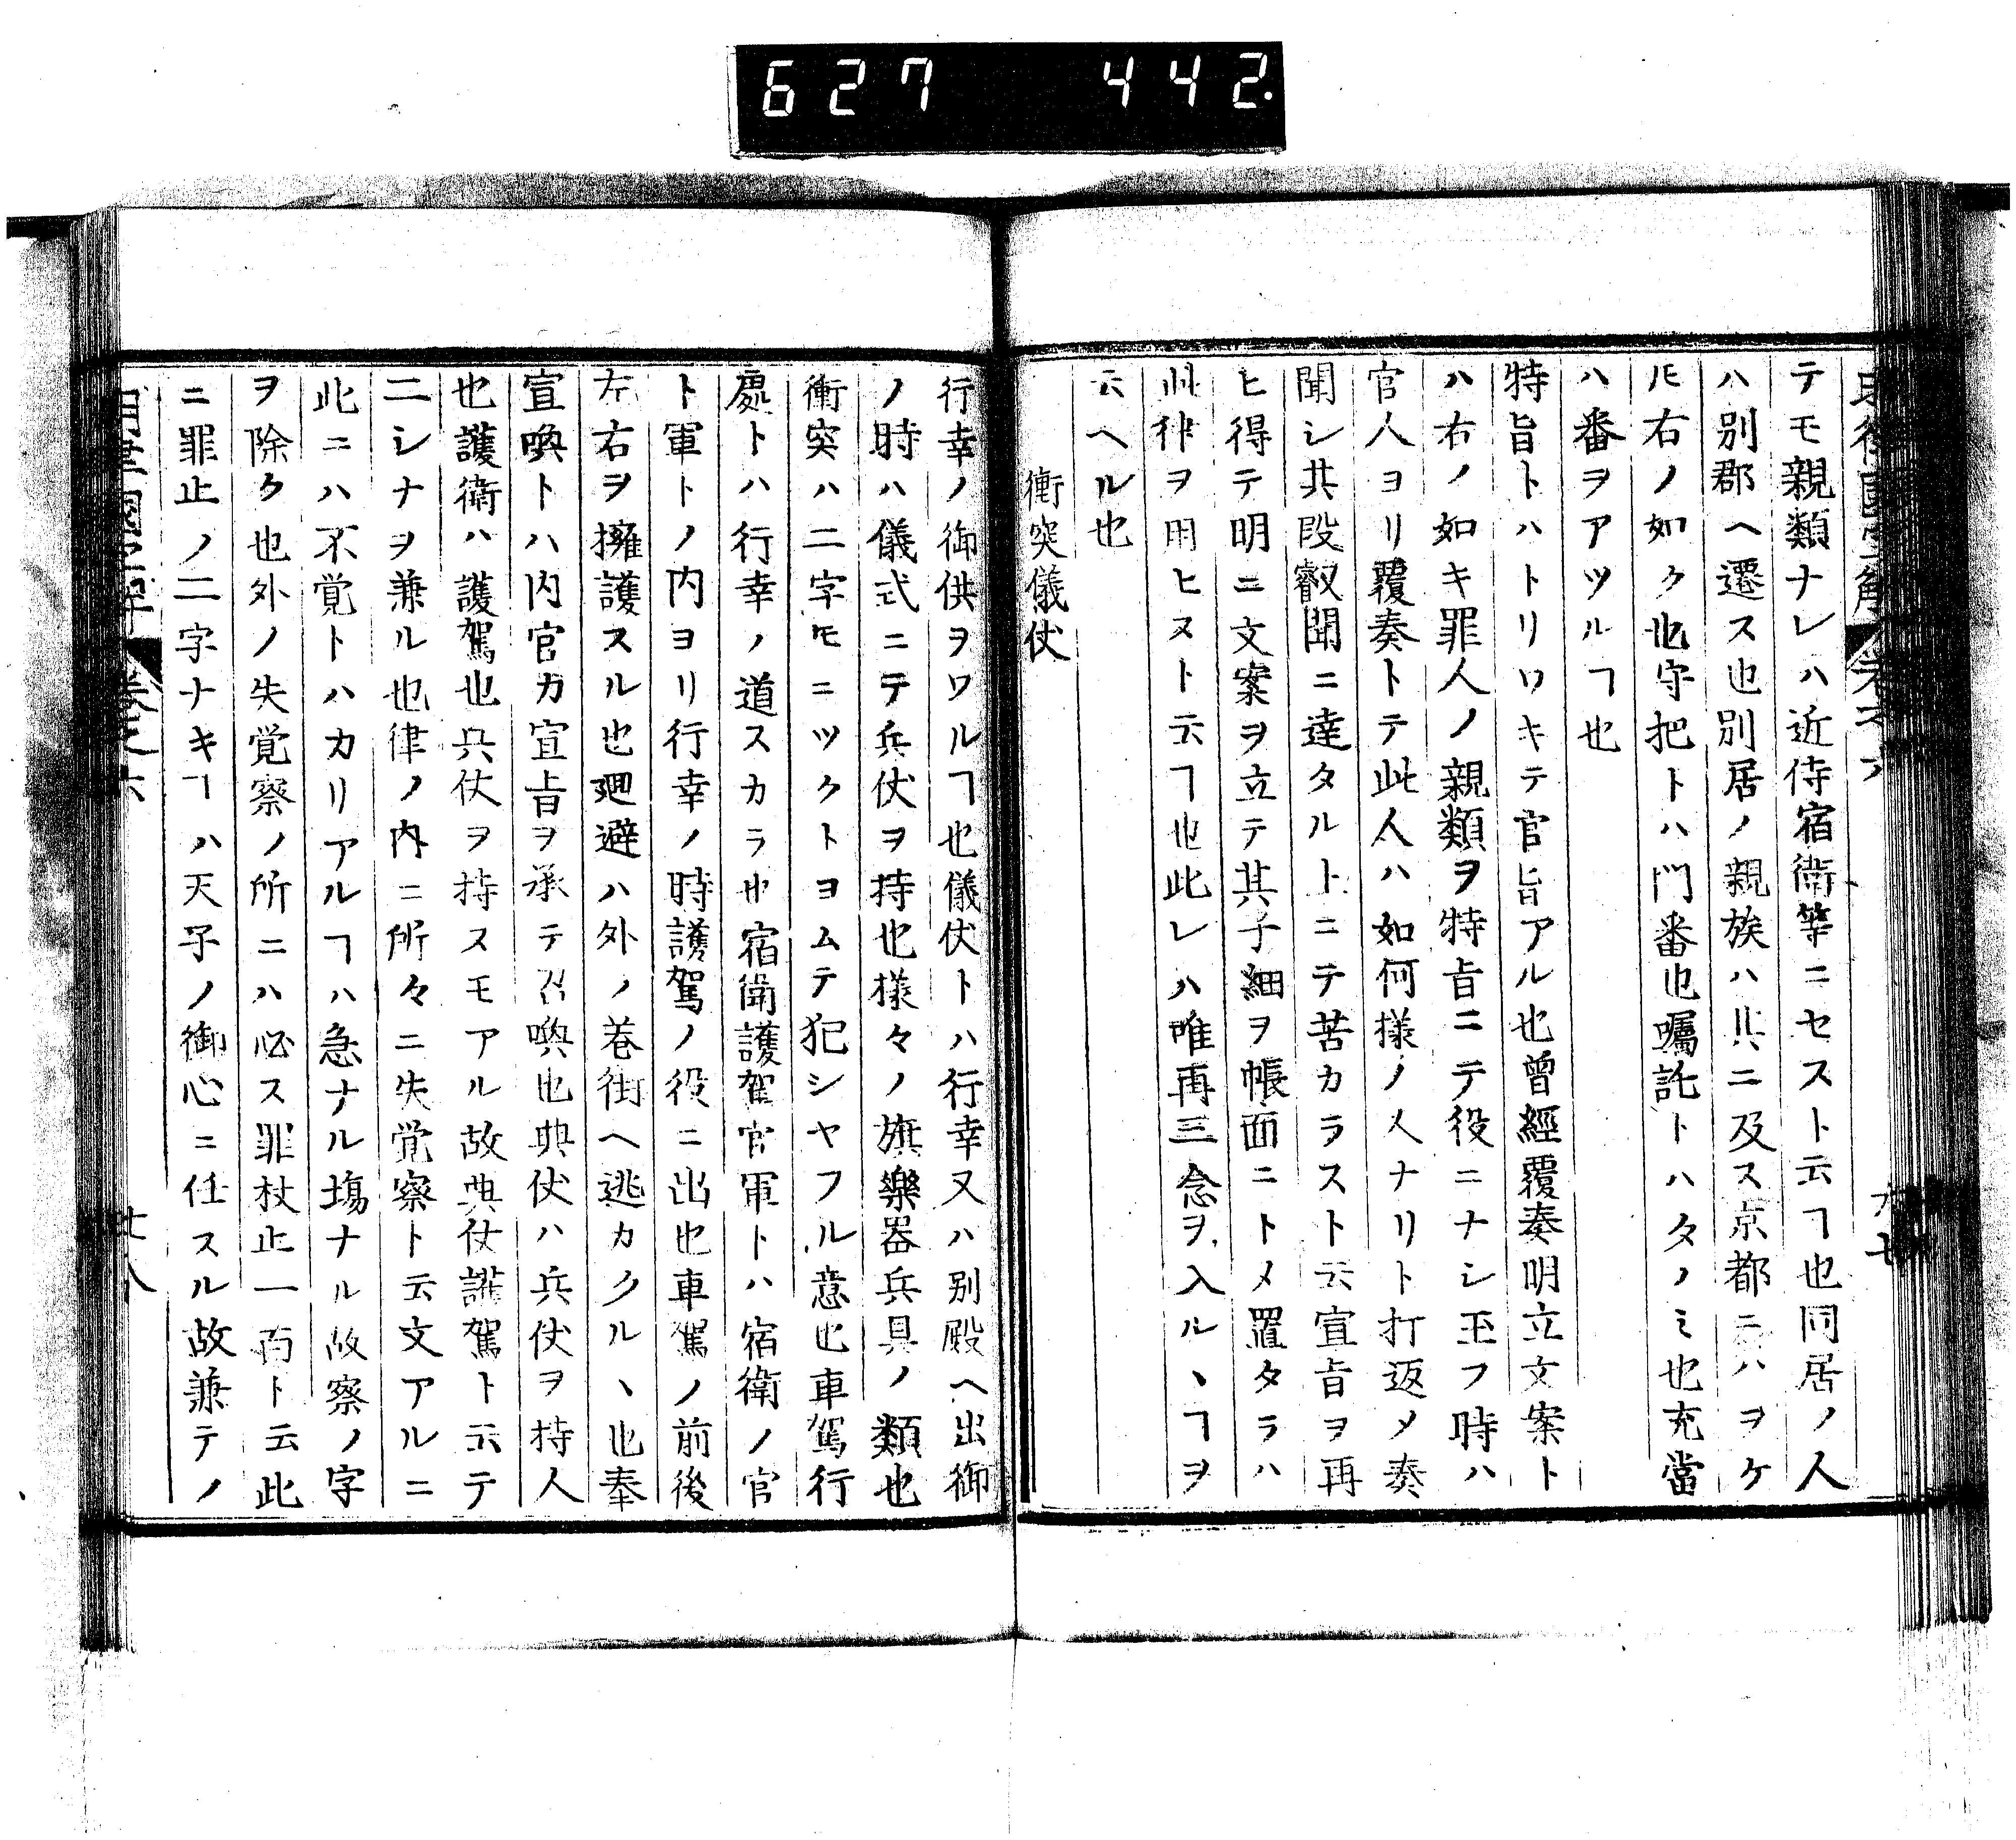 627 442.
テモ親類ナレハ近侍宿衛等ニセスト云ヿ也同居ノ人
ハ別郡ヘ遷ス也別居ノ親族ハ其ニ及ス京都ニハヲケ
𪜈右ノ如ク也守把トハ門番也囑託トハタノミ也充當
ハ番ヲアツルヿ也
特旨トハトリワキテ官旨アル也曾經覆奏明立文案ト
ハ右ノ如キ罪人ノ親類ヲ特旨ニテ役ニナシ玉フ時ハ
官人ヨリ覆奏トテ此人ハ如何樣ノ人ナリト打返メ奏
聞シ其段叡聞ニ達タルトニテ苦カラスト云宣旨ヲ再
ヒ得テ明ニ文案ヲ立テ其子細ヲ帳面ニトメ置タラハ
此律ヲ用ヒヌト云ヿ也此レハ唯再三念ヲ入ルヽヿヲ
云ヘル也
衝突儀仗
行幸ノ御供ヲワルヿ也儀仗トハ行幸又ハ別殿ヘ出御
ノ時ハ儀式ニテ兵仗ヲ持也樣々ノ旗樂器兵具ノ類也
衝突ハ二字𪜈ニツクトヨムテ犯シヤフル意也車駕行
處トハ行幸ノ道スカラ也宿衛護駕官軍トハ宿衛ノ官
ト軍トノ内ヨリ行幸ノ時護駕ノ役ニ出也車駕ノ前後
左右ヲ擁護スル也廻避ハ外ノ巷街ヘ逃カクルヽ也奉
宣喚トハ内官カ宣旨ヲ承テ召喚也典仗ハ兵仗ヲ持人
也護衛ハ護駕也兵仗ヲ持スモアル故典仗護駕ト云テ
二シナヲ兼ル也律ノ内ニ所々ニ失覚察ト云文アルニ
此ニハ不覚トハカリアルヿハ急ナル塲ナル故察ノ字
ヲ除ク也外ノ失覚察ノ所ニハ必ス罪杖止一百ト云此
ニ罪止ノ二字ナキヿハ天子ノ御心ニ任スル故兼テノ
明律國字解 卷之六 廿八